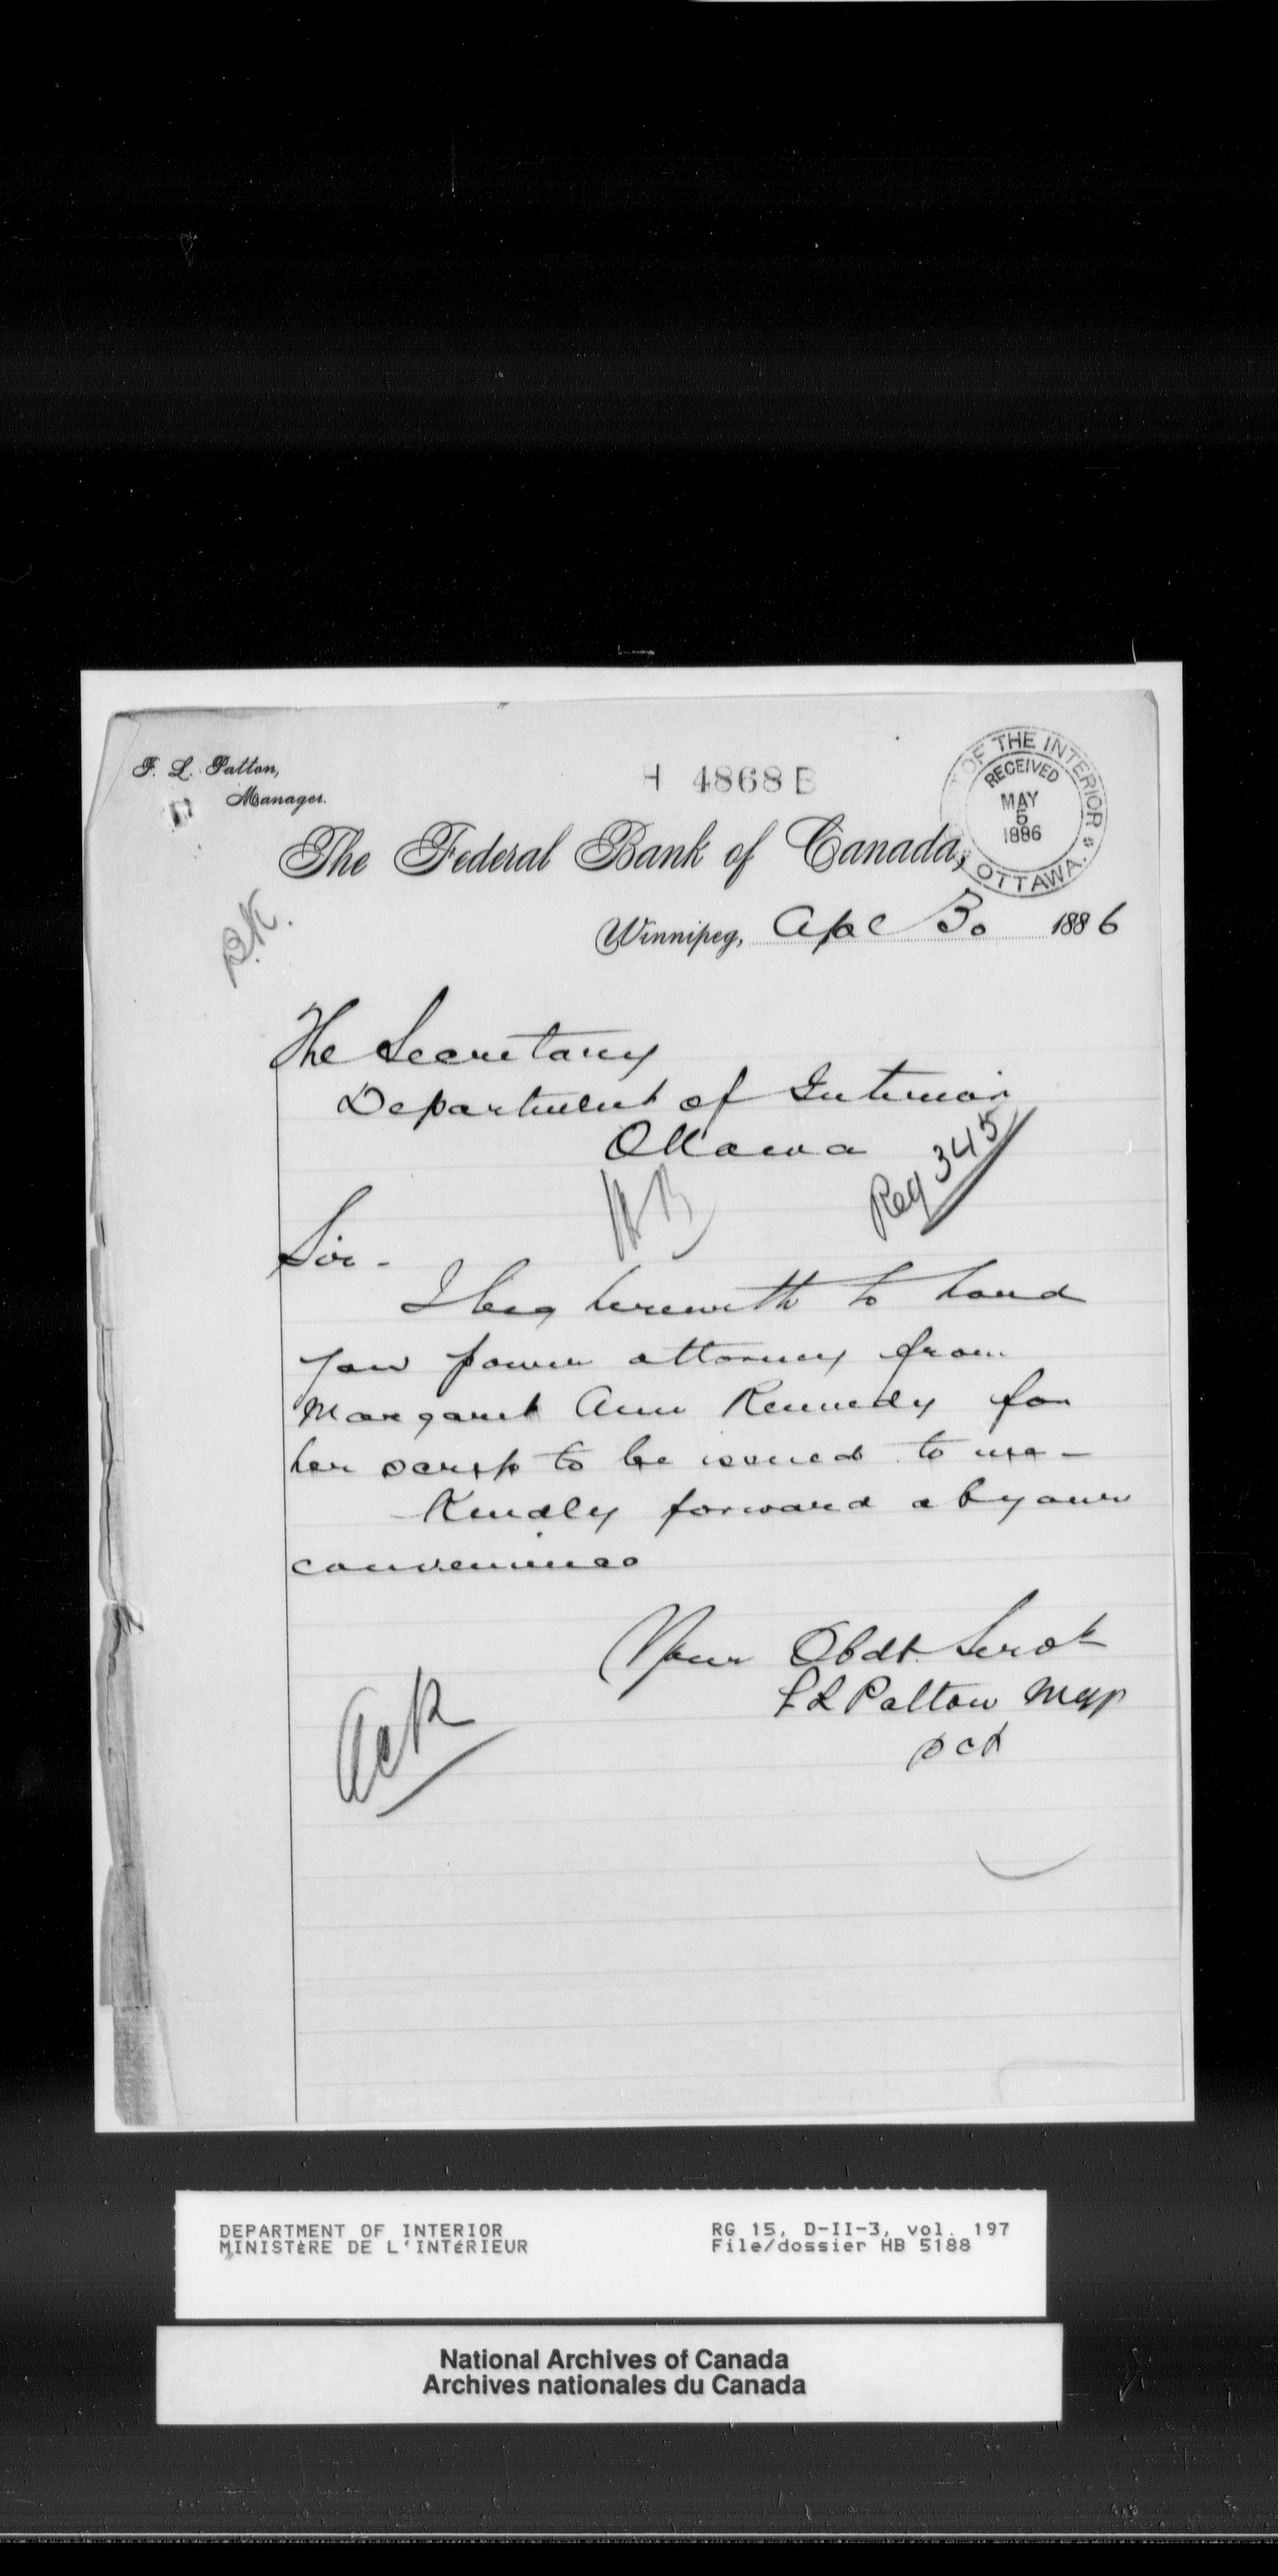 F. L. Patton,
Manager.
H 4868 B
OF THE INTERIOR
RECEIVED
MAY
5
1886
OTTAWA.
The Federal Bank of Canada,
B.K.
Winnipeg, Apl 30 1886
The Secretary
Department of Interior
Ottawa
Reg 345
HB
Sir -
I beg herewith to hand
you power attorney from
Margaret Ann Kennedy for
her scrip to be issued to me -
Kindly forward at your
convenience
Your Obdt Servt
F L Patton Mgr
Ack
DEPARTMENT OF INTERIOR
MINISTÈRE DE L'INTÉRIEUR
RG 15, D-II-3, vol. 197
File/dossier HB 5188
National Archives of Canada
Archives nationales du Canada